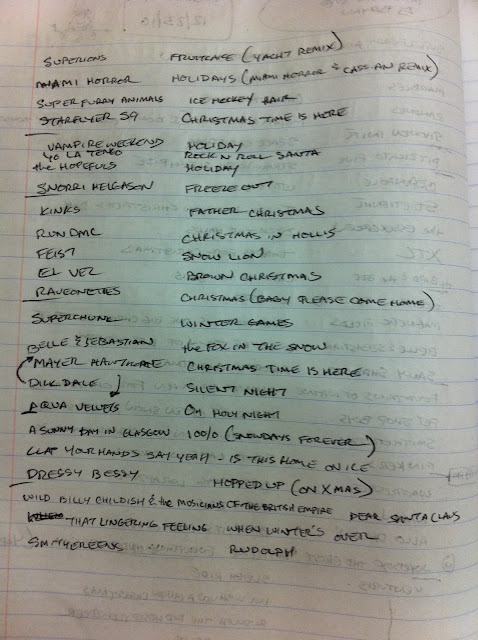 SUPERIONS FRUITCAKE (YACHT REMIX)
MIAMI HORROR HOLIDAYS (MIAMI HORROR & CASSIAN REMIX)
SUPER FURRY ANIMALS ICE HOCKEY HAIR
STARFLYER 59 CHRISTMAS TIME IS HERE
VAMPIRE WEEKEND HOLIDAY
YO LA TENGO ROCK N ROLL SANTA
the HOPEFULS HOLIDAY
SNORRI HELGASON FREEZE OUT
KINKS FATHER CHRISTMAS
RUN DMC CHRISTMAS IN HOLLIS
FEIST SNOW LION
EL VEZ BROWN CHRISTMAS
RAVEONETTES CHRISTMAS (BABY PLEASE COME HOME)
SUPERCHUNK WINTER GAMES
BELLE & SEBASTIAN the FOX IN THE SNOW
MAYER HAWTHORNE CHRISTMAS TIME IS HERE
DICK DALE SILENT NIGHT
AQUA VELVETS OH HOLY NIGHT
A SUNNY DAY IN GLASGOW 100/0 (SNOWDAYS FOREVER)
CLAP YOUR HANDS SAY YEAH - IS THIS HOME ON ICE
DRESSY BESSY HOPPED UP (ON XMAS)
WILD BILLY CHILDISH & the MUSICIANS OF THE BRITISH EMPIRE DEAR SANTA CLAUS
THAT LINGERING FEELING WHEN WINTER'S OVER
SMITHEREENS RUDOLPH